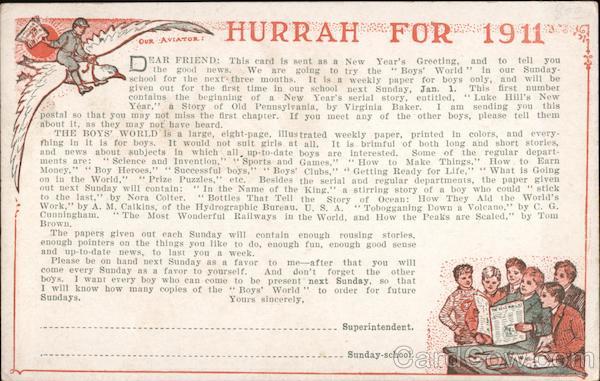 HURRAH FOR 1911
OUR AVIATOR:
DEAR FRIEND: This card is sent as a New Year's Greeting, and to tell you
the good news. We are going to try the "Boys' World" in our Sunday-
school for the next three months. It is a weekly paper for boys only, and will be
given out for the first time in our school next Sunday, Jan. 1. This first number
contains the beginning of a New Year's serial story, entitled, "Luke Hill's New
Year," a Story of Old Pennsylvania, by Virginia Baker. I am sending you this
postal so that you may not miss the first chapter. If you meet any of the other boys, please tell them
about it, as they may not have heard.
THE BOYS' WORLD is a large, eight-page, illustrated weekly paper, printed in colors, and every-
thing in it is for boys. It would not suit girls at all. It is brimful of both long and short stories,
and news about subjects in which all up-to-date boys are interested. Some of the regular depart-
ments are: "Science and Invention," "Sports and Games," "How to Make Things," How to Earn
Money," "Boy Heroes," "Successful boys," "Boys' Clubs," "Getting Ready for Life," "What is Going
on in the World," "Prize Puzzles," etc. Besides the serial and regular departments, the paper given
out next Sunday will contain: "In the Name of the King," a stirring story of a boy who could "stick
to the last," by Nora Colter. "Bottles That Tell the Story of Ocean: How They Aid the World's
Work," by A. M. Calkins, of the Hydrographic Bureau, U. S. A. "Tobogganing Down a Volcano," by C. G.
Cunningham. "The Most Wonderful Railways in the World, and How the Peaks are Scaled," by Tom
Brown.
The papers given out each Sunday will contain enough rousing stories,
enough pointers on the things you like to do, enough fun, enough good sense
and up-to-date news, to last you a week.
Please be on hand next Sunday as a favor to me—after that you will
come every Sunday as a favor to yourself. And don't forget the other
boys. I want every boy who can come to be present next Sunday, so that
I will know how many copies of the "Boys' World" to order for future
Sundays. Yours sincerely,
Superintendent.
Sunday-school.
CardCow.com